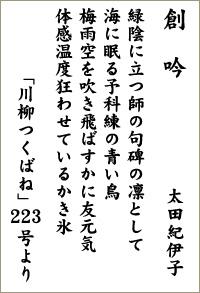 創吟
太田紀伊子
緑陰に立つ師の句碑の凛として
海に眠る予科練の青い鳥
梅雨空を吹き飛ばすかに友元気
体感温度狂わせているかき氷
「川柳つくばね」223号より